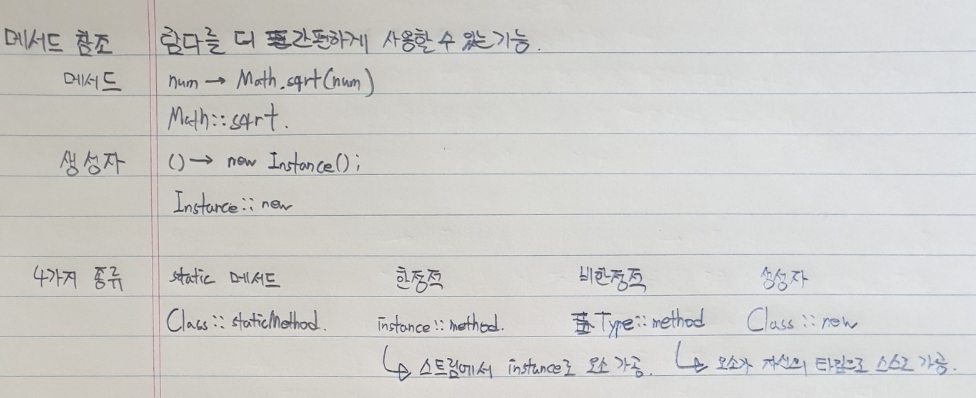 메서드 참조 람다를 더 간편하게 사용할 수 있는 기능.
메서드 num → Math.sqrt(num)
Math::sqrt.
생성자 () → new Instance();
Instance::new
4가지 종류 static 메서드 한정적 비한정적 생성자
Class::staticMethod. instance::method. Type::method Class::new
↳ 스트림에서 instance로 요소 가공. ↳ 요소가 자신의 타입으로 스스로 가공.